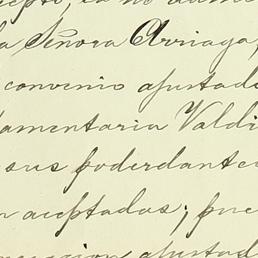 la Señora Arriaga,
convenio ajustado
tamentaria Valdi
sus poderdantes
aceptadas; pue
ajustad